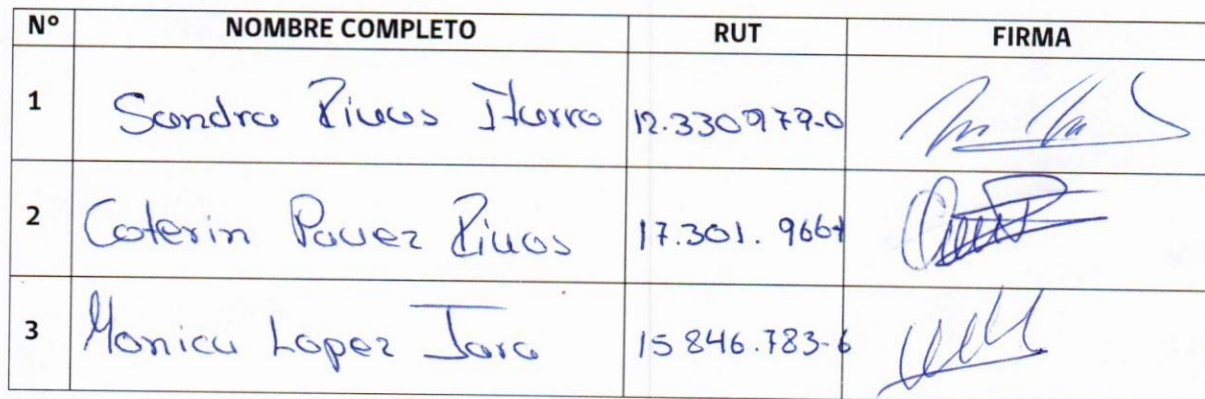 N° NOMBRE COMPLETO RUT FIRMA
1 Sandra Rivas Iturra 12.330979-0
2 Caterin Pavez Rivas 17.301.
3 Monica Lopez Jara 15846.783-6